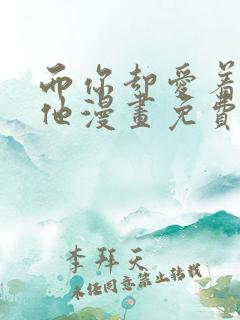 而你却爱着
他漫畫免費
李拜天
未经同意禁止转载